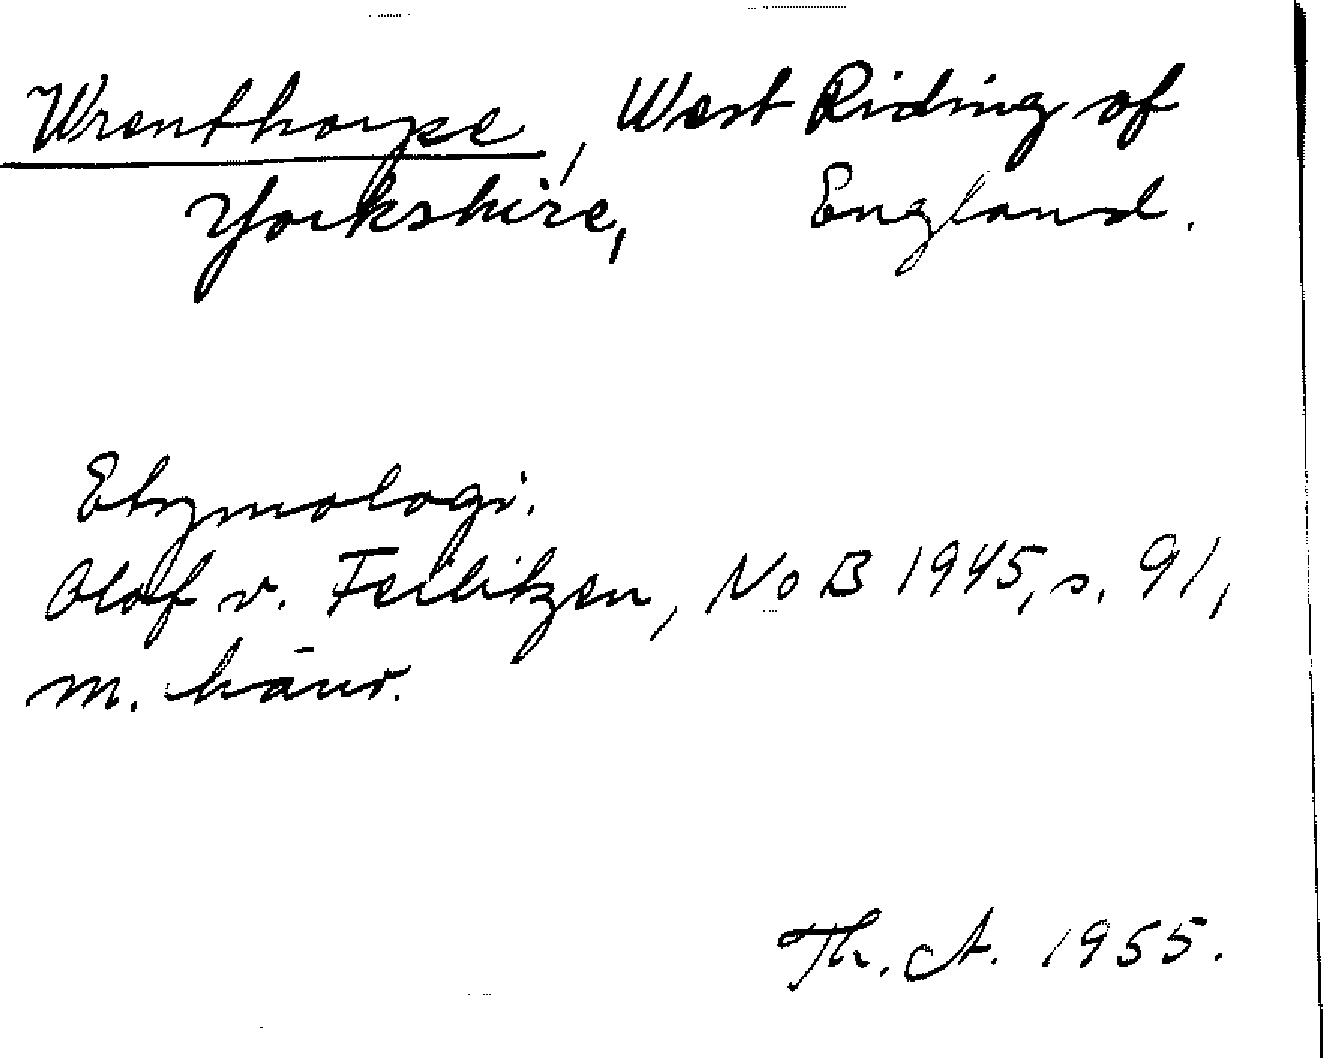 Wrenthorpe, West Riding of
Yorkshire, England.
Etymologi.
Olof v. Feilitzen, NoB 1945, s. 91,
m. hänv.
Th. A. 1955.